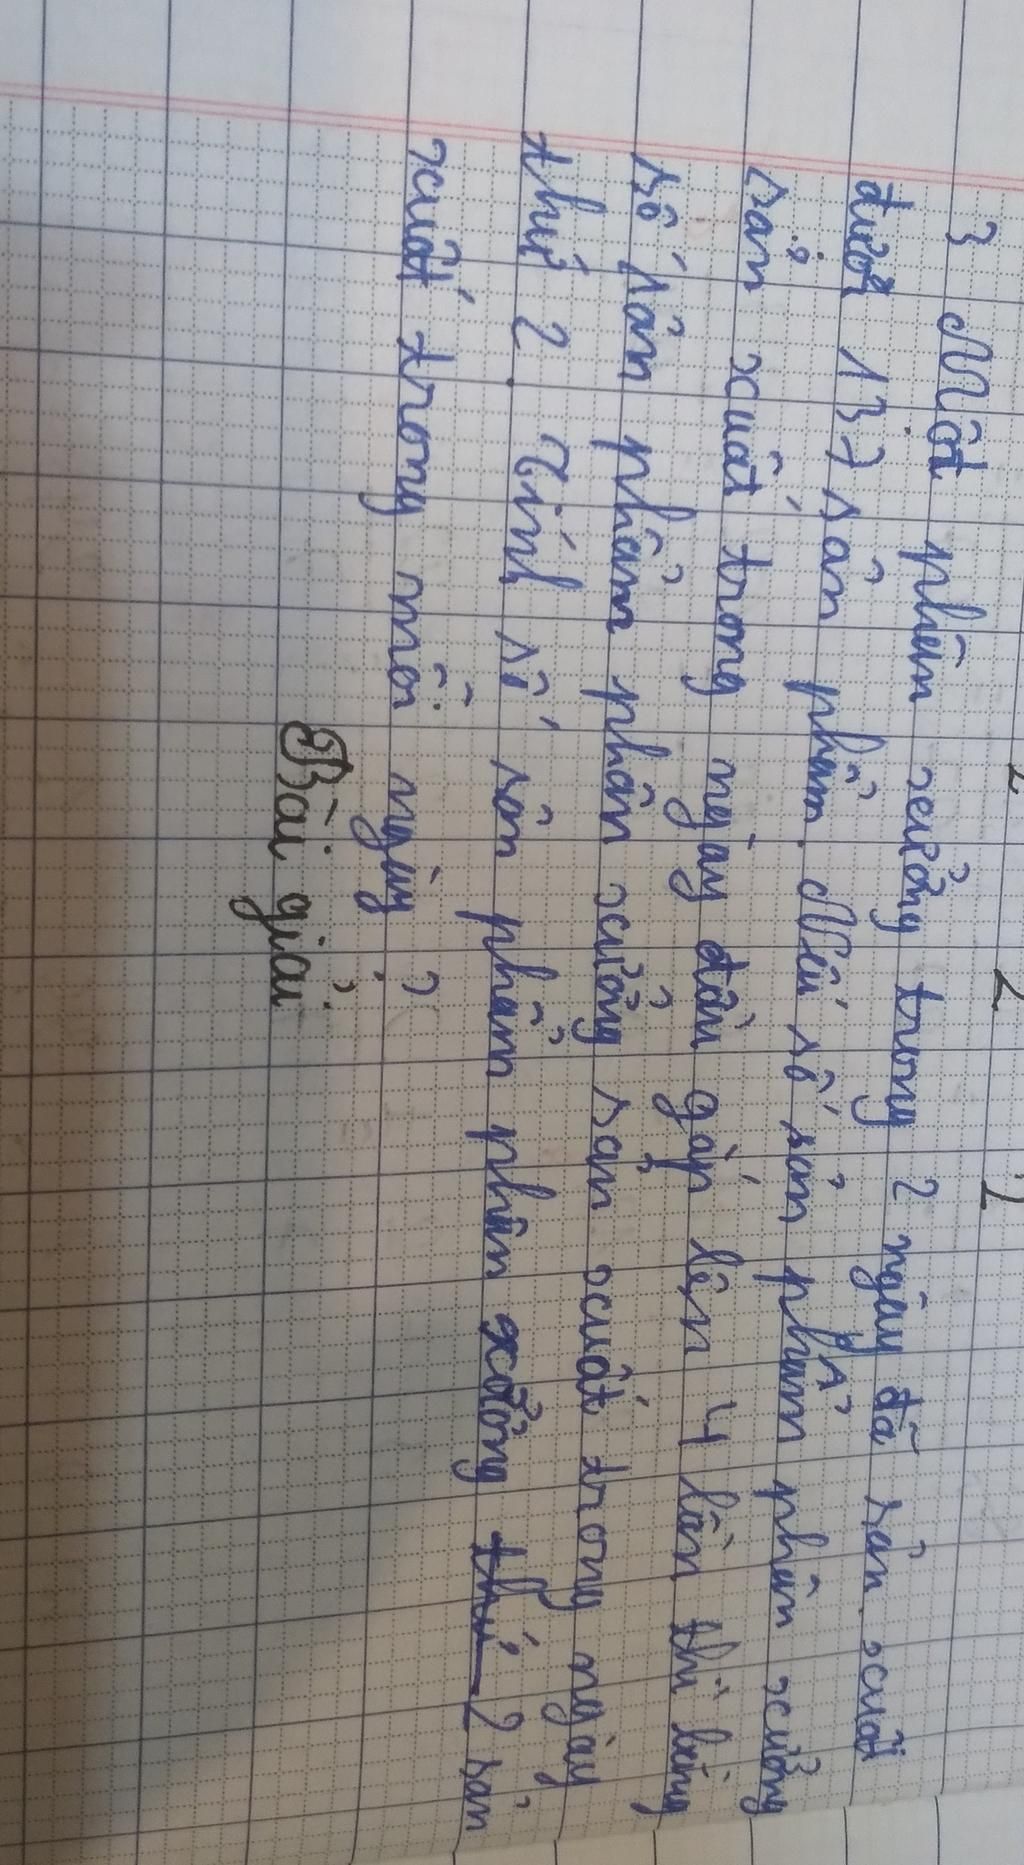 2 2 2
3 Một phêm xưởng trong 2 ngày đã sản xuất
được 137 sản phẩm. Nếu số sản phẩm phên xưởng
sản xuất trong ngày đầu gấp lên 4 lần thì bằng
số sản phẩm phân xưởng sản xuất trong ngày
thứ 2. Tính số sản phẩm phên xưởng thứ 2 sản
xuất trong mỗi ngày ?
Bài giải